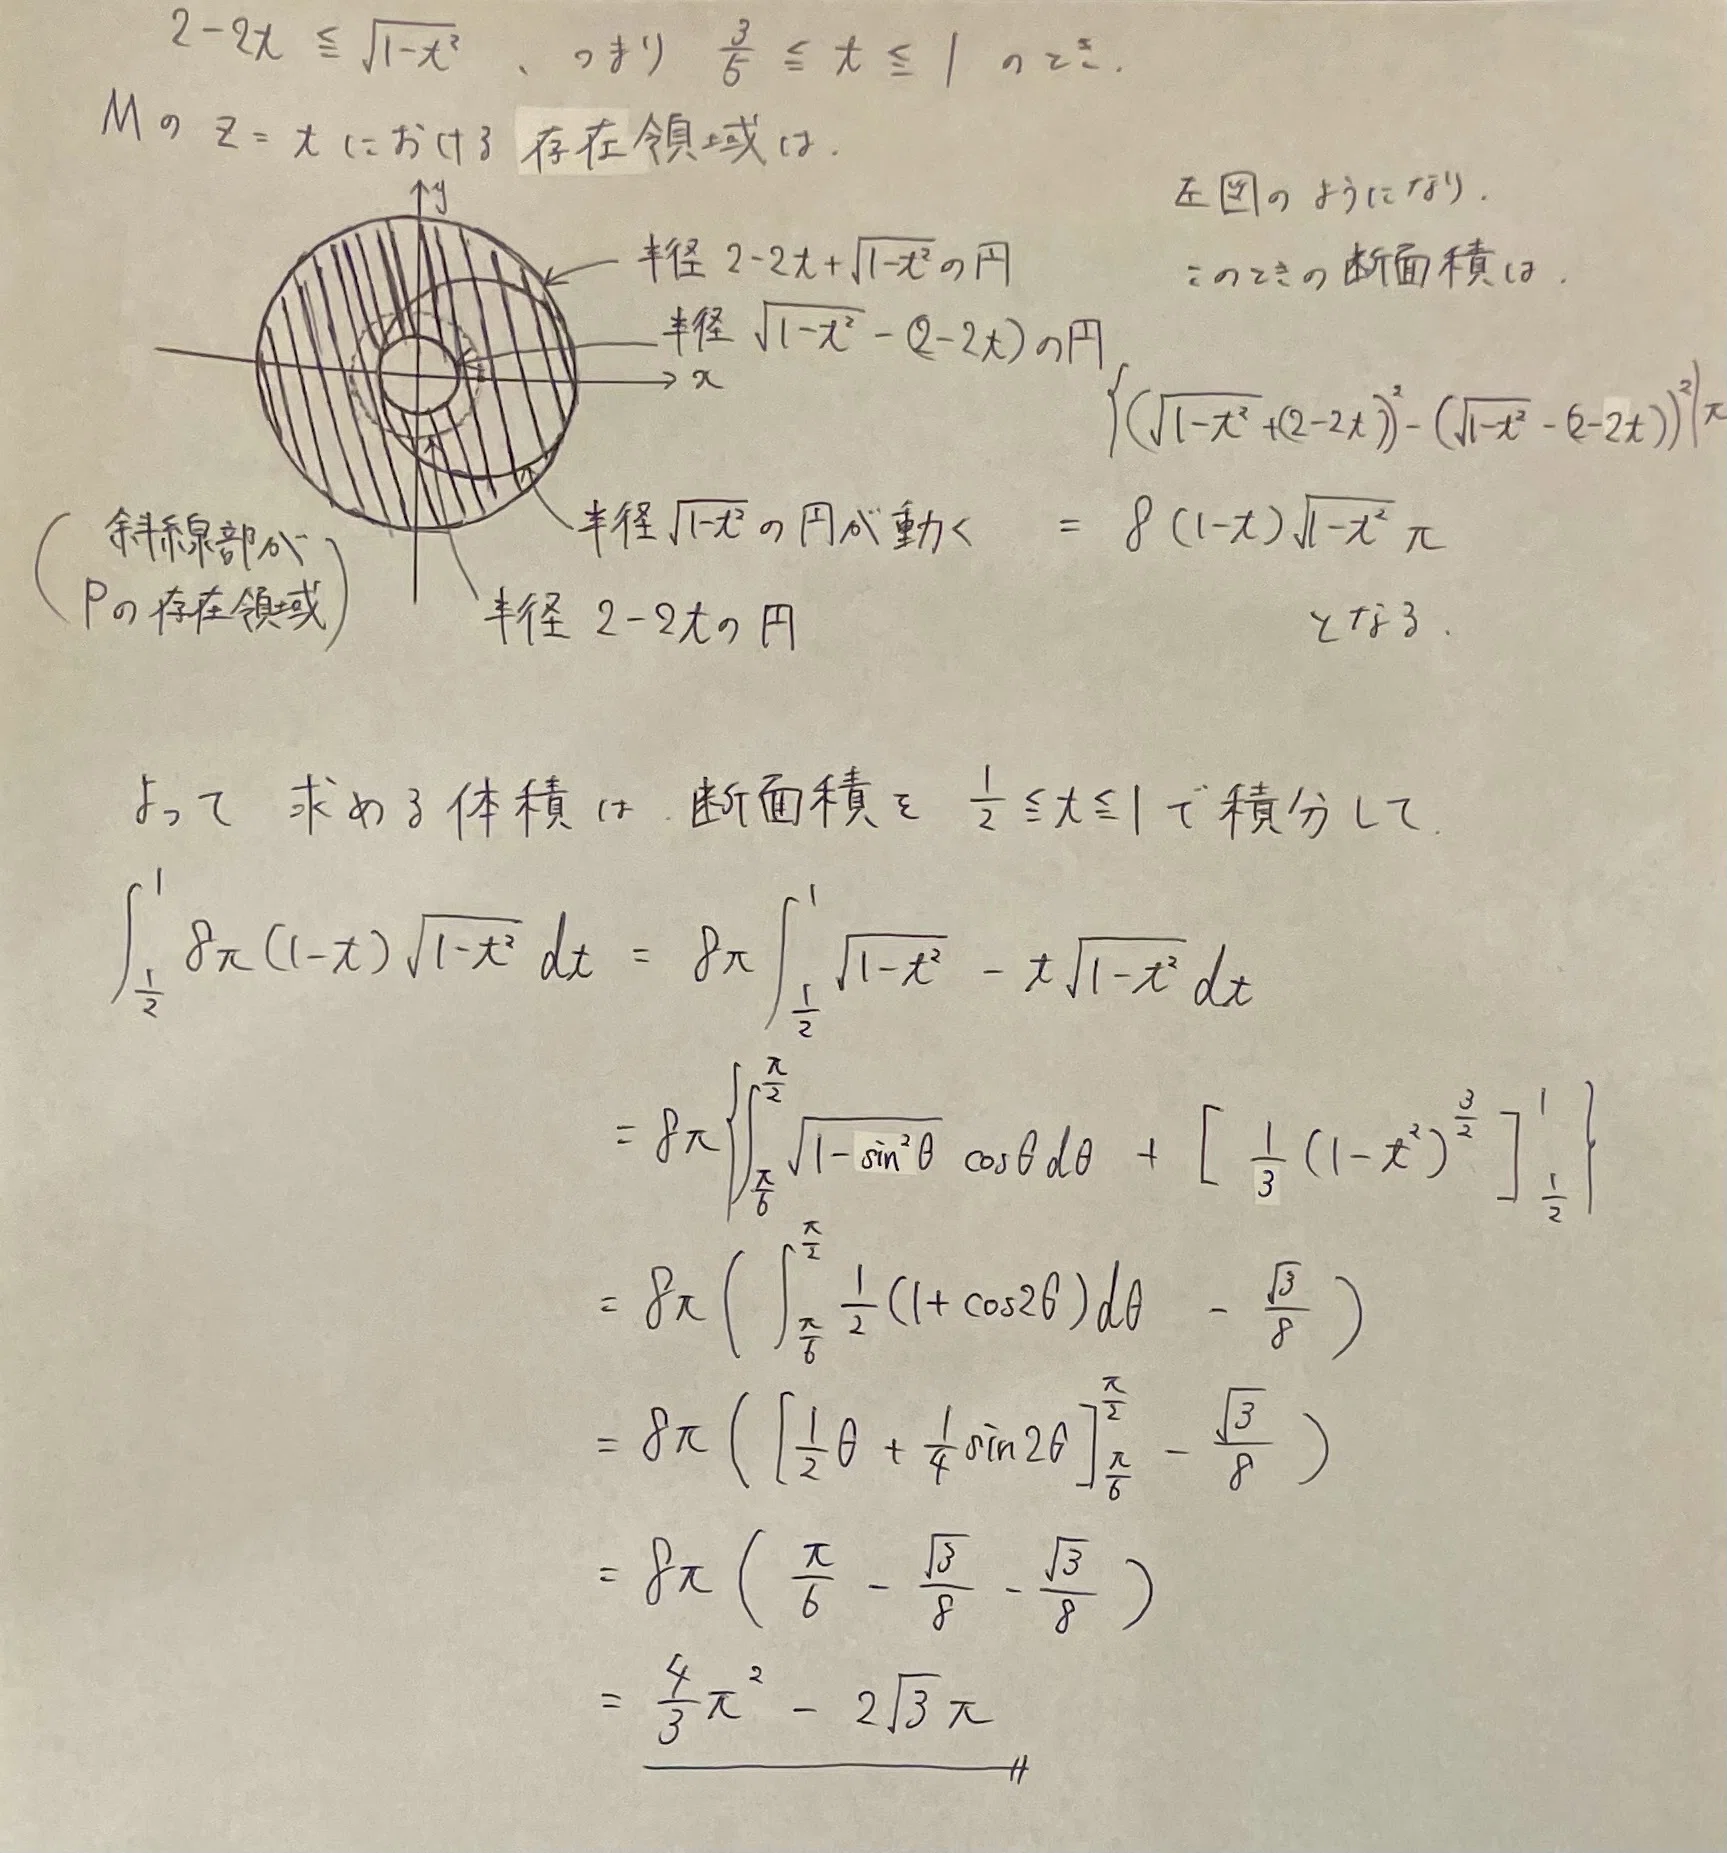 2-2t ≦ √(1-t²) 、つまり 3/5 ≦ t ≦ 1 のとき.
Mの z=t における 存在領域は.
y
x
半径 2-2t+√(1-t²) の円
半径 √(1-t²) - (2-2t) の円
半径 √(1-t²) の円が動く
半径 2-2t の円
(斜線部が
Pの存在領域)
左図のようになり.
このときの断面積は.
{(√(1-t²)+(2-2t))² - (√(1-t²) - (2-2t))²}π
= 8(1-t)√(1-t²) π
となる.
よって 求める体積は. 断面積を 1/2 ≦ t ≦ 1 で積分して.
∫_{1/2}^{1} 8π(1-t)√(1-t²) dt = 8π ∫_{1/2}^{1} √(1-t²) - t√(1-t²) dt
= 8π{∫_{π/6}^{π/2} √(1-sin²θ) cosθdθ + [1/3 (1-t²)^{3/2}]_{1/2}^{1}}
= 8π(∫_{π/6}^{π/2} 1/2 (1+cos2θ)dθ - √3/8)
= 8π([1/2 θ + 1/4 sin2θ]_{π/6}^{π/2} - √3/8)
= 8π(π/6 - √3/8 - √3/8)
= 4/3 π² - 2√3 π